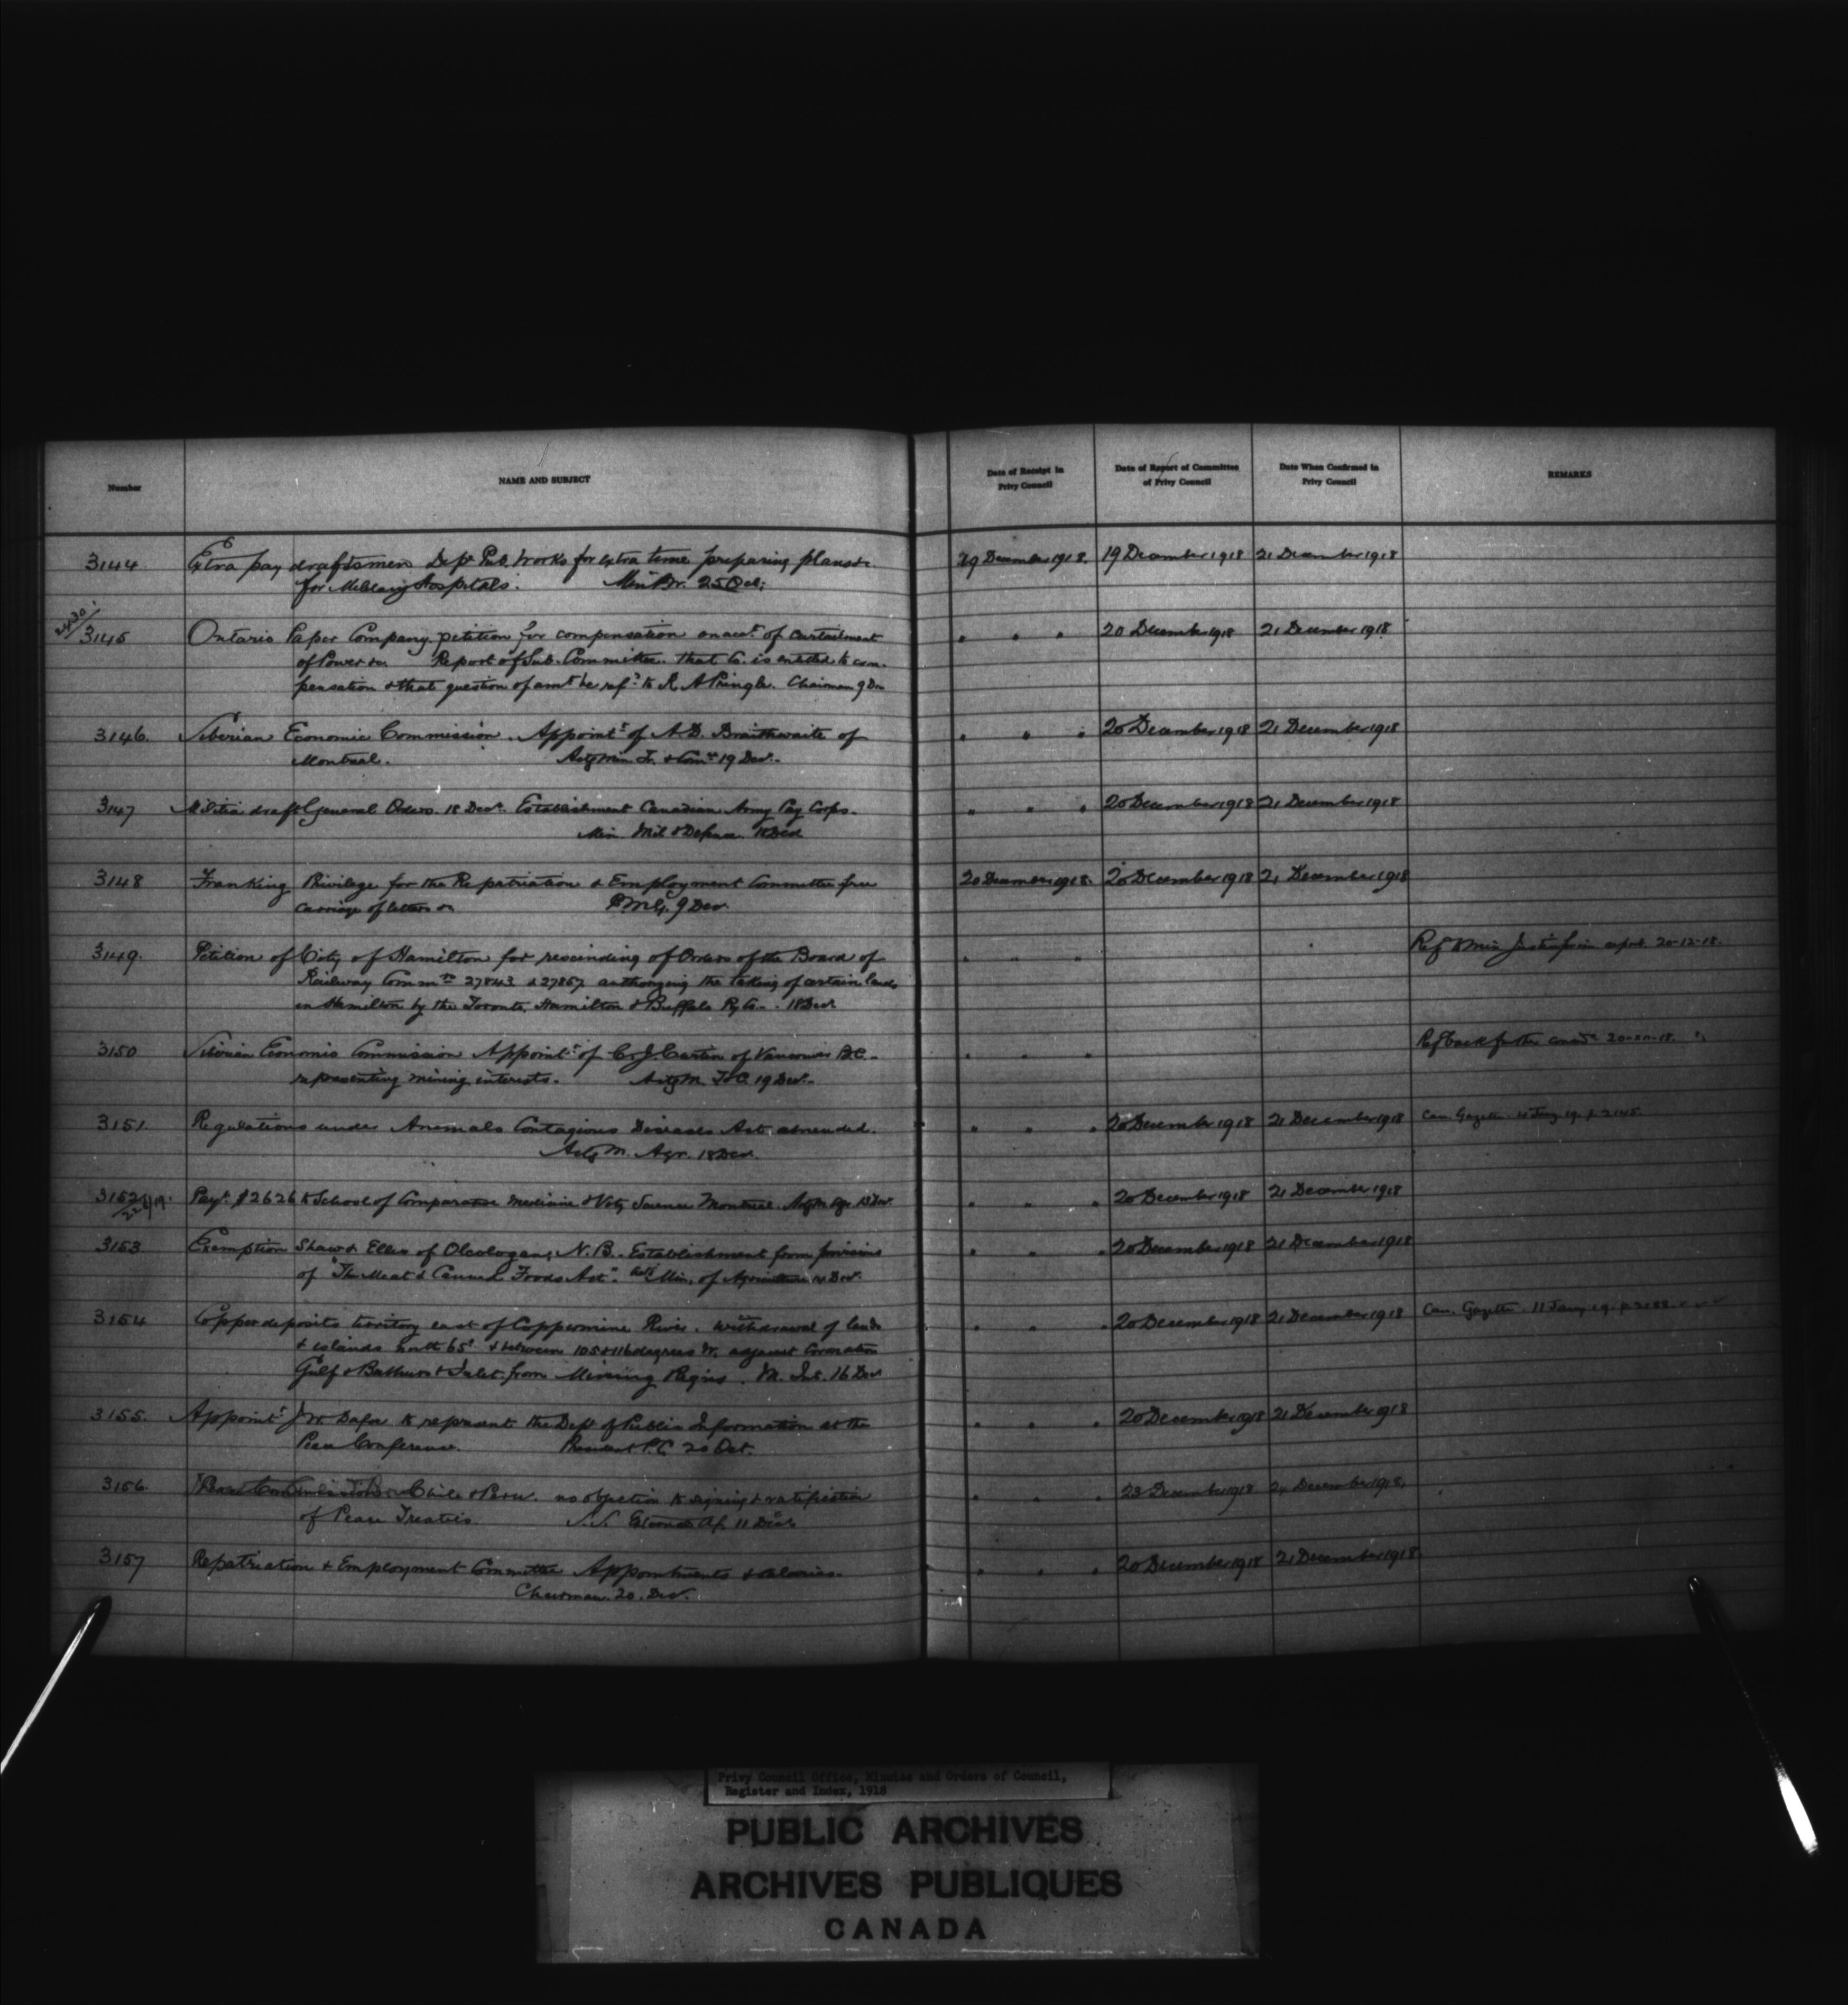 Number
NAME AND SUBJECT
Date of Receipt in
Privy Council
Date of Report of Committee
of Privy Council
Date When Confirmed in
Privy Council
REMARKS
3144 Extra pay draftsmen Dept Pub. Works for extra time preparing plans &c 19 December 1918. 19 December 1918 21 December 1918
for Military Hospitals. 25 Oct.
3145 Ontario Paper Company petition for compensation on acct. of curtailment " " " 20 December 1918 21 December 1918
of Power &c. Report of Sub-Committee that Co. is entitled to com-
pensation & that question of amt be refd to R. A Pringle. Chairman 9 Dec
3146. Siberian Economic Commission. Appointt of A. D. Braithwaite of " " " 20 December 1918 21 December 1918
Montreal. Actg Min Tr. & Comce 19 Decr.
3147 Militia draft General Orders. 18 Decr. Establishment Canadian Army Pay Corps. " " " 20 December 1918 21 December 1918
Min. Mil & Defence 18 Decr
3148 Franking Privilege for the Repatriation & Employment Committee free 20 December 1918. 20 December 1918 21 December 1918
carriage of letters &c P.M.G. 9 Decr.
3149. Petition of City of Hamilton for rescinding of Orders of the Board of " " " Ref to Min Justice for report 20-12-18.
Railway Commrs 27843 & 27857 authorizing the taking of certain lands
in Hamilton by the Toronto, Hamilton & Buffalo Ry Co. 18 Decr
3150 Siberian Economic Commission Appointt of of Vancouver B.C. " " " Ref back further consdn 20-XII-18.
representing mining interests. Actg M. T & C. 19 Decr.
3151. Regulations under Animals Contagious Diseases Act, amended. " " " 20 December 1918 21 December 1918 Can. Gazette Jany 19. p 2145
Actg M. Agr. 18 Decr.
3152 Payt. $2626 to School of Comparative Medicine & Vety Science Montreal. Actg M Agr. 13 Decr. " " " 20 December 1918 21 December 1918
3153 Exemption Shaw & Ellis of Olcologan, N. B. Establishment from provisions " " " 20 December 1918 21 December 1918
of "The Meat & Canned Foods Act". Actg Min. of Agriculture Decr.
3154 Copper deposits territory east of Coppermine River. Withdrawal of lands " " " 20 December 1918 21 December 1918 Can. Gazette. 11 Jany 19. p
& islands north 65° & between 105 & 116 degrees W. adjacent Coronation
Gulf & Bathurst Inlet from Mining Regns. M. Int. 16 Decr
3155. Appointt J W. Dafoe to represent the Dept of Public Information at the " " " 20 December 1918 21 December 1918
Peace Conference. President P.C 20 Oct.
3156. Chile & Peru. no objection to signing & ratification " " " 23 December 1918 24 December 1918.
of Peace Treaties. 11 Decr.
3157 Repatriation & Employment Committee Appointments & salaries. " " " 20 December 1918 21 December 1918.
Chairman. 20. Decr.
Privy Council Office, Minutes and Orders of Council,
Register and Index, 1918
PUBLIC ARCHIVES
ARCHIVES PUBLIQUES
CANADA